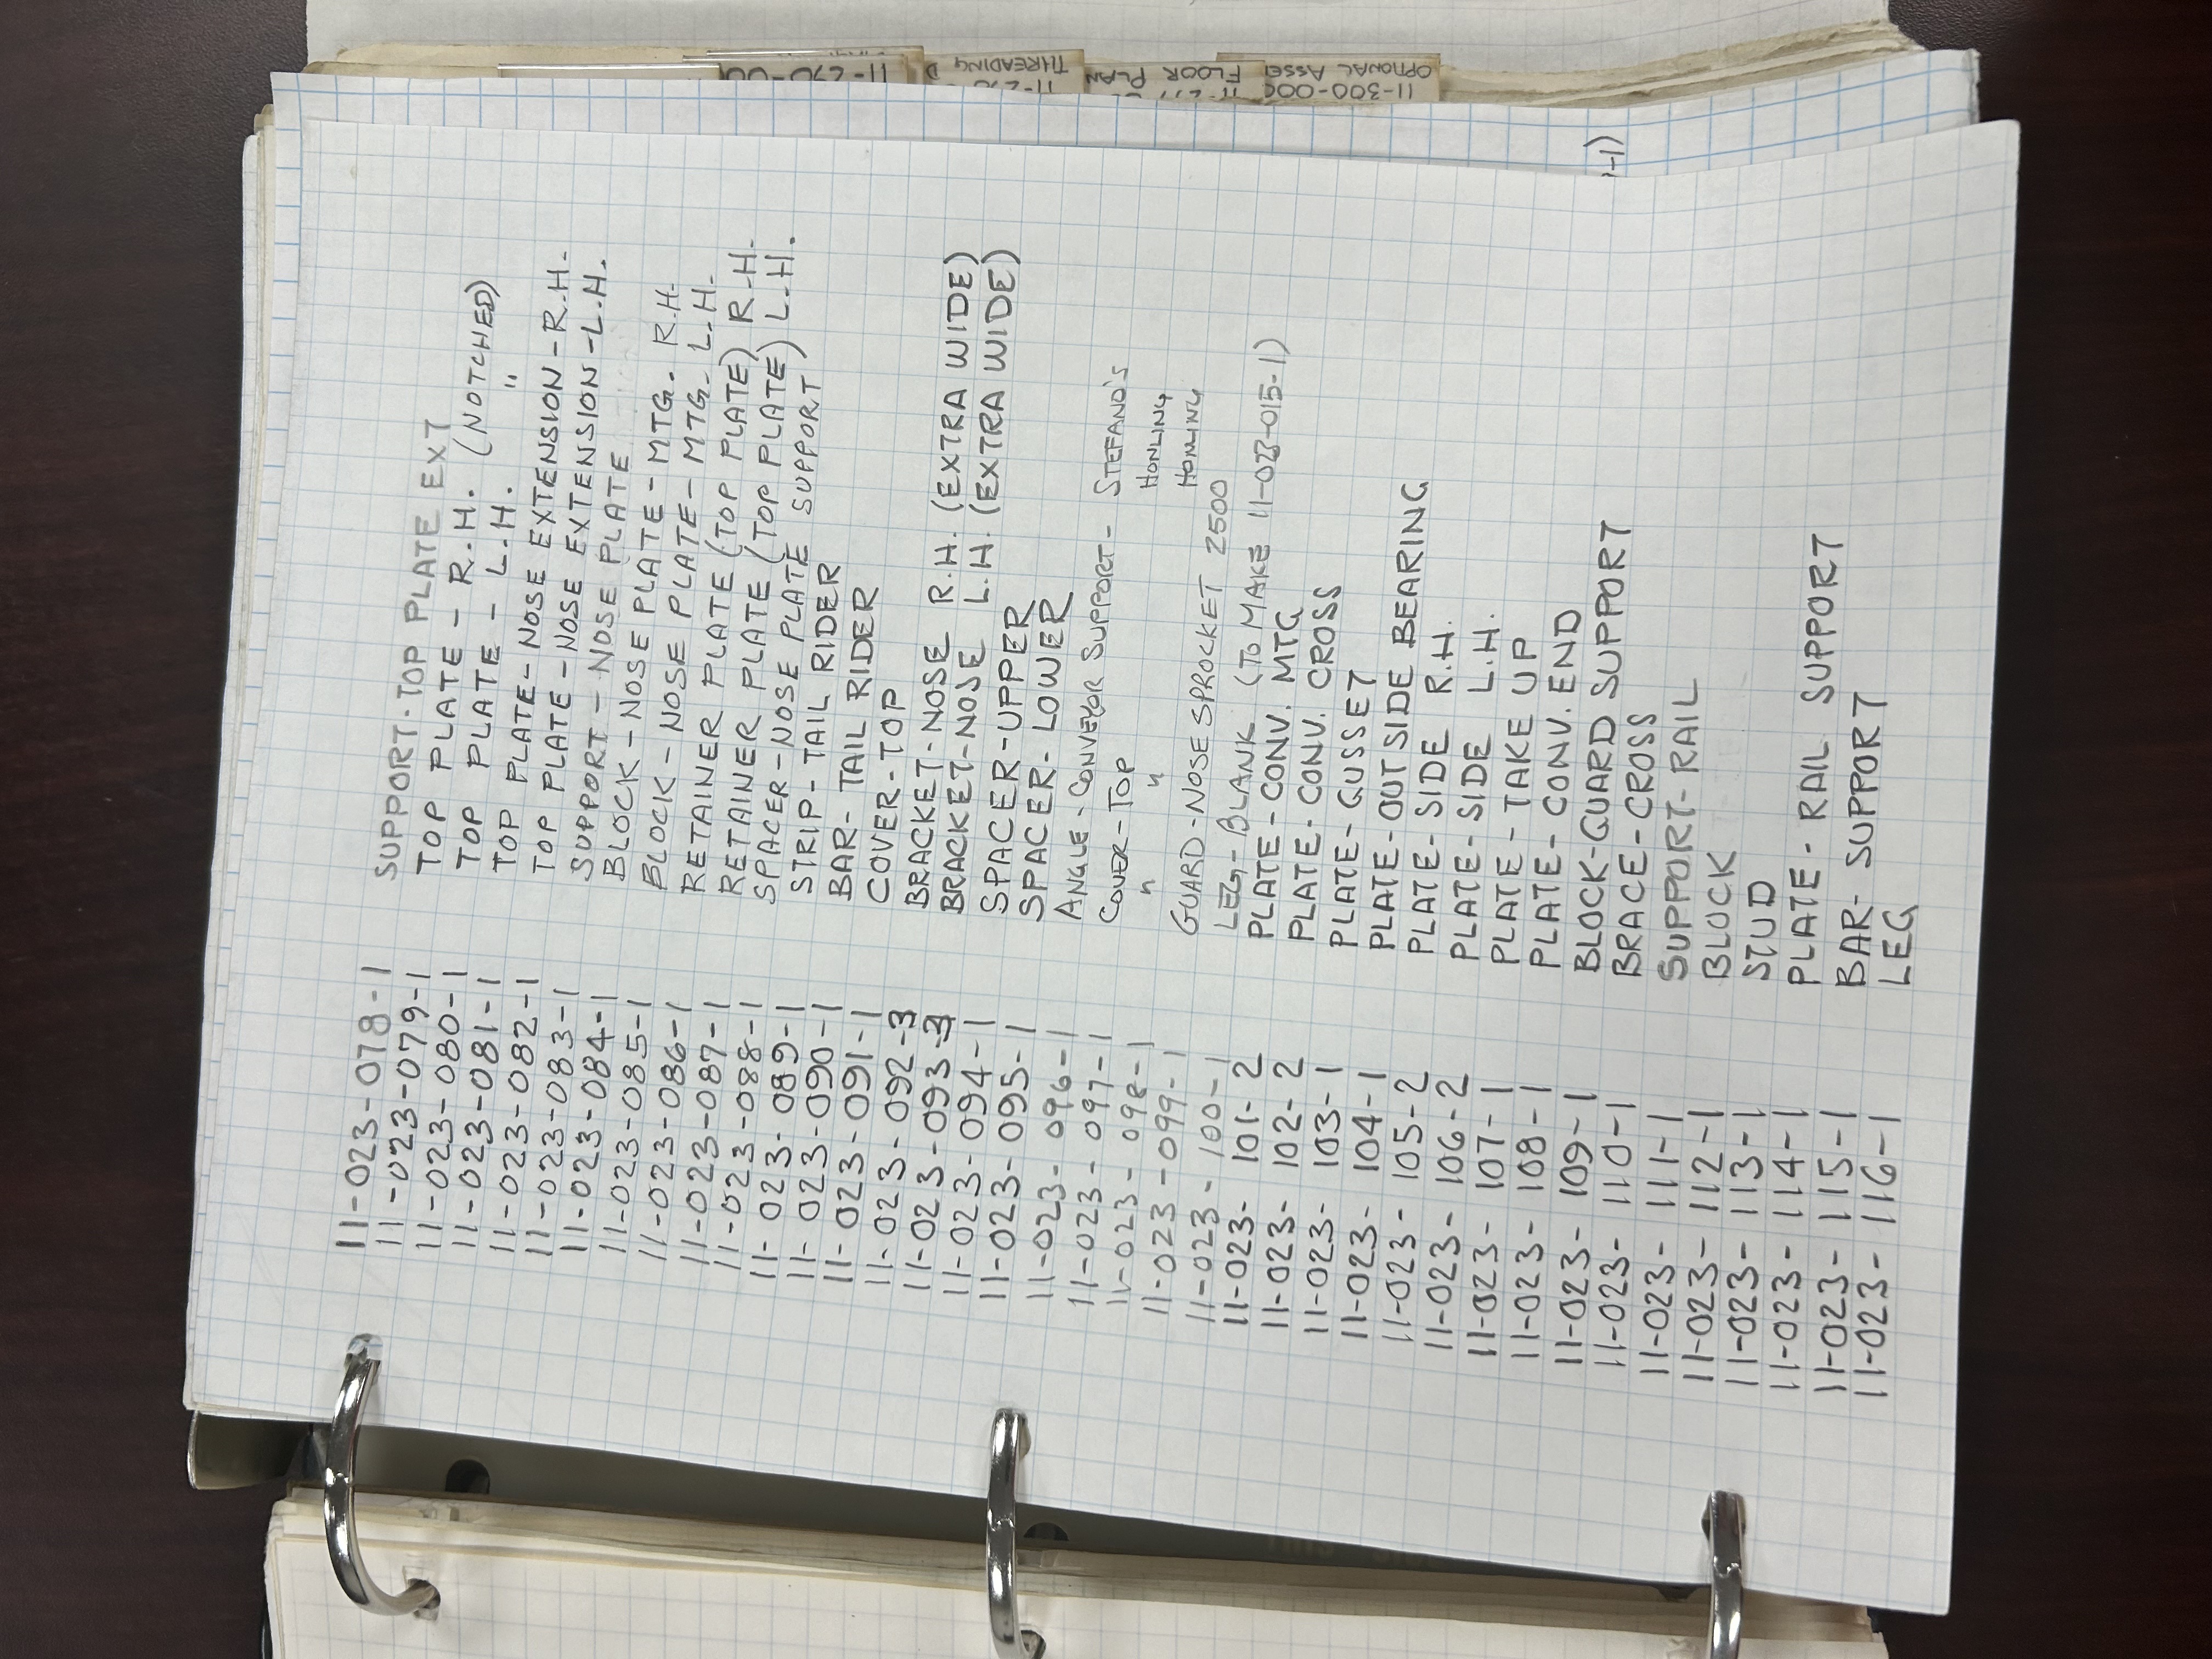 11-023-078-1 SUPPORT-TOP PLATE EXT
11-023-079-1 TOP PLATE - R.H. (NOTCHED)
11-023-080-1 TOP PLATE - L.H. "
11-023-081-1 TOP PLATE-NOSE EXTENSION-R.H.
11-023-082-1 TOP PLATE-NOSE EXTENSION-L.H.
11-023-083-1 SUPPORT - NOSE PLATE
11-023-084-1 BLOCK-NOSE PLATE-MTG. R.H.
11-023-085-1 BLOCK-NOSE PLATE-MTG. L.H.
11-023-086-1 RETAINER PLATE (TOP PLATE) R.H.
11-023-087-1 RETAINER PLATE (TOP PLATE) L.H.
11-023-088-1 SPACER-NOSE PLATE SUPPORT
11-023-089-1 STRIP-TAIL RIDER
11-023-090-1 BAR-TAIL RIDER
11-023-091-1 COVER-TOP
11-023-092-3 BRACKET-NOSE R.H. (EXTRA WIDE)
11-023-093-3 BRACKET-NOSE L.H. (EXTRA WIDE)
11-023-094-1 SPACER-UPPER
11-023-095-1 SPACER-LOWER
11-023-096-1 ANGLE-CONVEYOR SUPPORT- STEFANO'S
11-023-097-1 COVER-TOP HONLING
11-023-098-1 " " HONLING
11-023-099-1 GUARD-NOSE SPROCKET 2500
11-023-100-1 LEG-BLANK (TO MAKE 11-023-015-1)
11-023-101-2 PLATE-CONV. MTG
11-023-102-2 PLATE-CONV. CROSS
11-023-103-1 PLATE-GUSSET
11-023-104-1 PLATE-OUTSIDE BEARING
11-023-105-2 PLATE-SIDE R.H.
11-023-106-2 PLATE-SIDE L.H.
11-023-107-1 PLATE-TAKE UP
11-023-108-1 PLATE-CONV. END
11-023-109-1 BLOCK-GUARD SUPPORT
11-023-110-1 BRACE-CROSS
11-023-111-1 SUPPORT-RAIL
11-023-112-1 BLOCK
11-023-113-1 STUD
11-023-114-1 PLATE-RAIL SUPPORT
11-023-115-1 BAR-SUPPORT
11-023-116-1 LEG
-1)
THREADING
11-300-000
OPTIONAL FLOOR PLAN